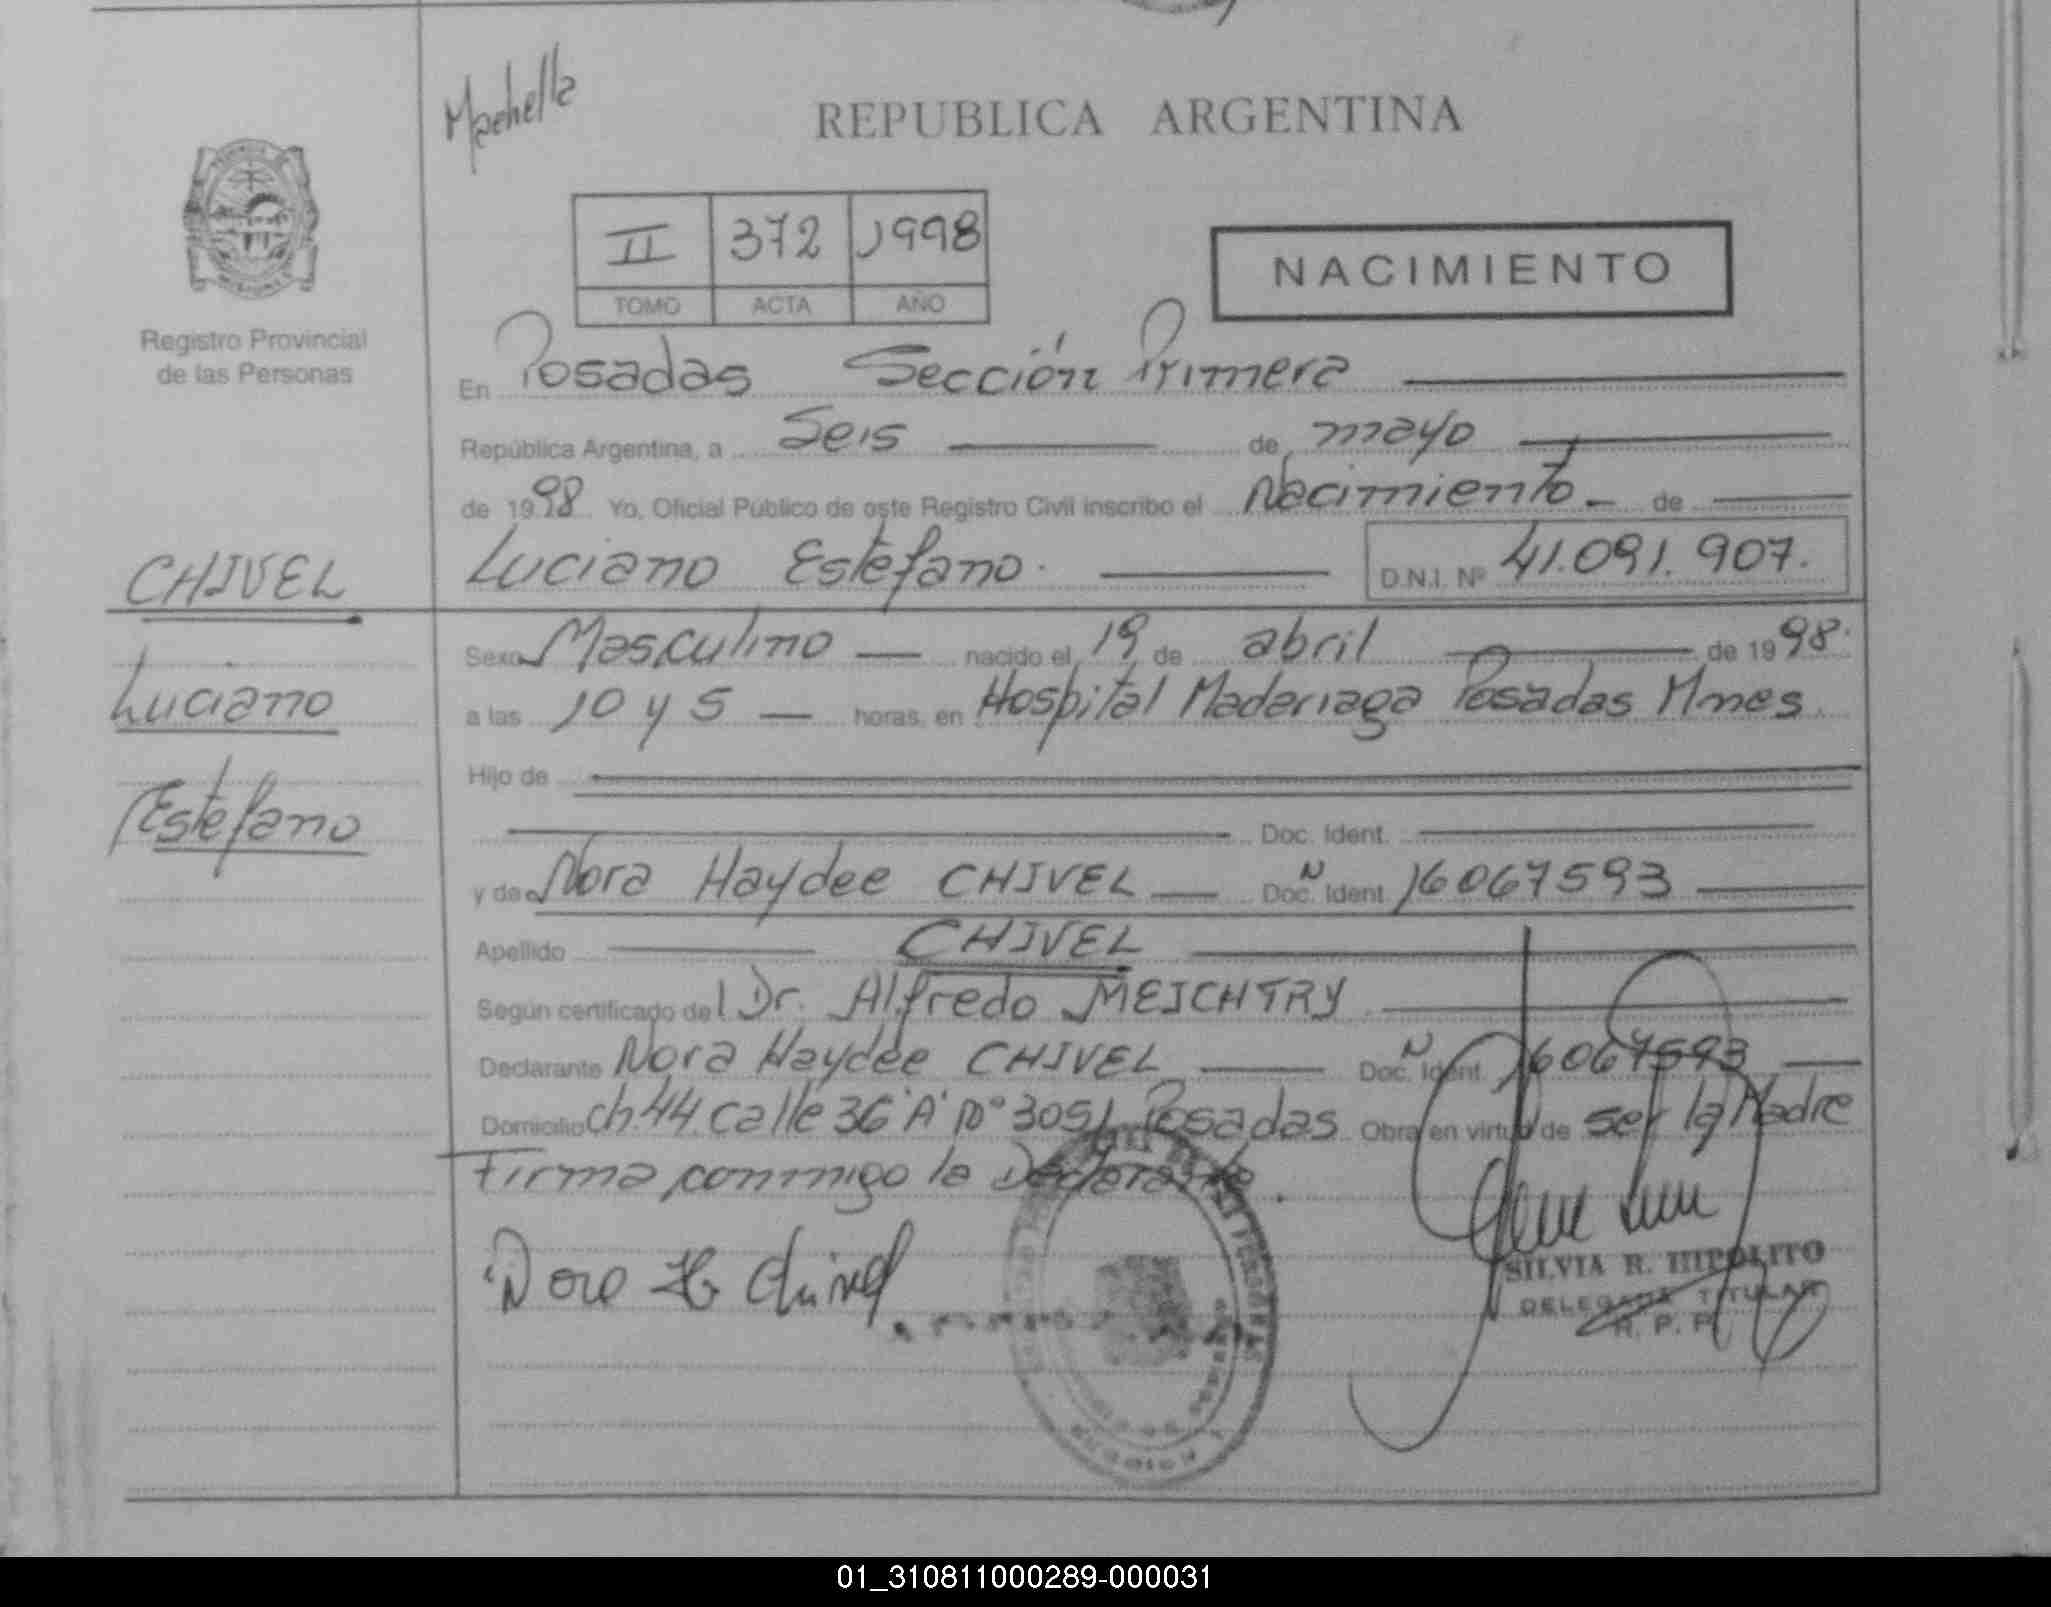 Machella
REPUBLICA ARGENTINA
II 372 1998
TOMO ACTA AÑO
NACIMIENTO
Registro Provincial
de las Personas
En Posadas Sección Primera
República Argentina, a Seis de mayo
de 1998 Yo, Oficial Público de este Registro Civil inscribo el Nacimiento de
CHIVEL
Luciano
Estefano
Luciano Estefano. D.N.I. Nº 41.091.907.
Sexo Masculino nacido el 19 de abril de 1998.
a las 10 y 5 horas, en Hospital Madariaga Posadas Mnes.
Hijo de
Doc. Ident.
y de Nora Haydee CHIVEL Doc. Ident. N 16067593
Apellido CHIVEL
Según certificado del Dr. Alfredo MEICHTRY
Declarante Nora Haydée CHIVEL Doc. Ident. N 16067593
Domicilio ch.44.calle 36"A" Nº 3051 Posadas Obra en virtud de ser la Madre
Firma conmigo la Declarante.
Nora H Chivel
SILVIA R. HIPOLITO
DELEGADA TITULAR
R. P. P.
01_310811000289-000031